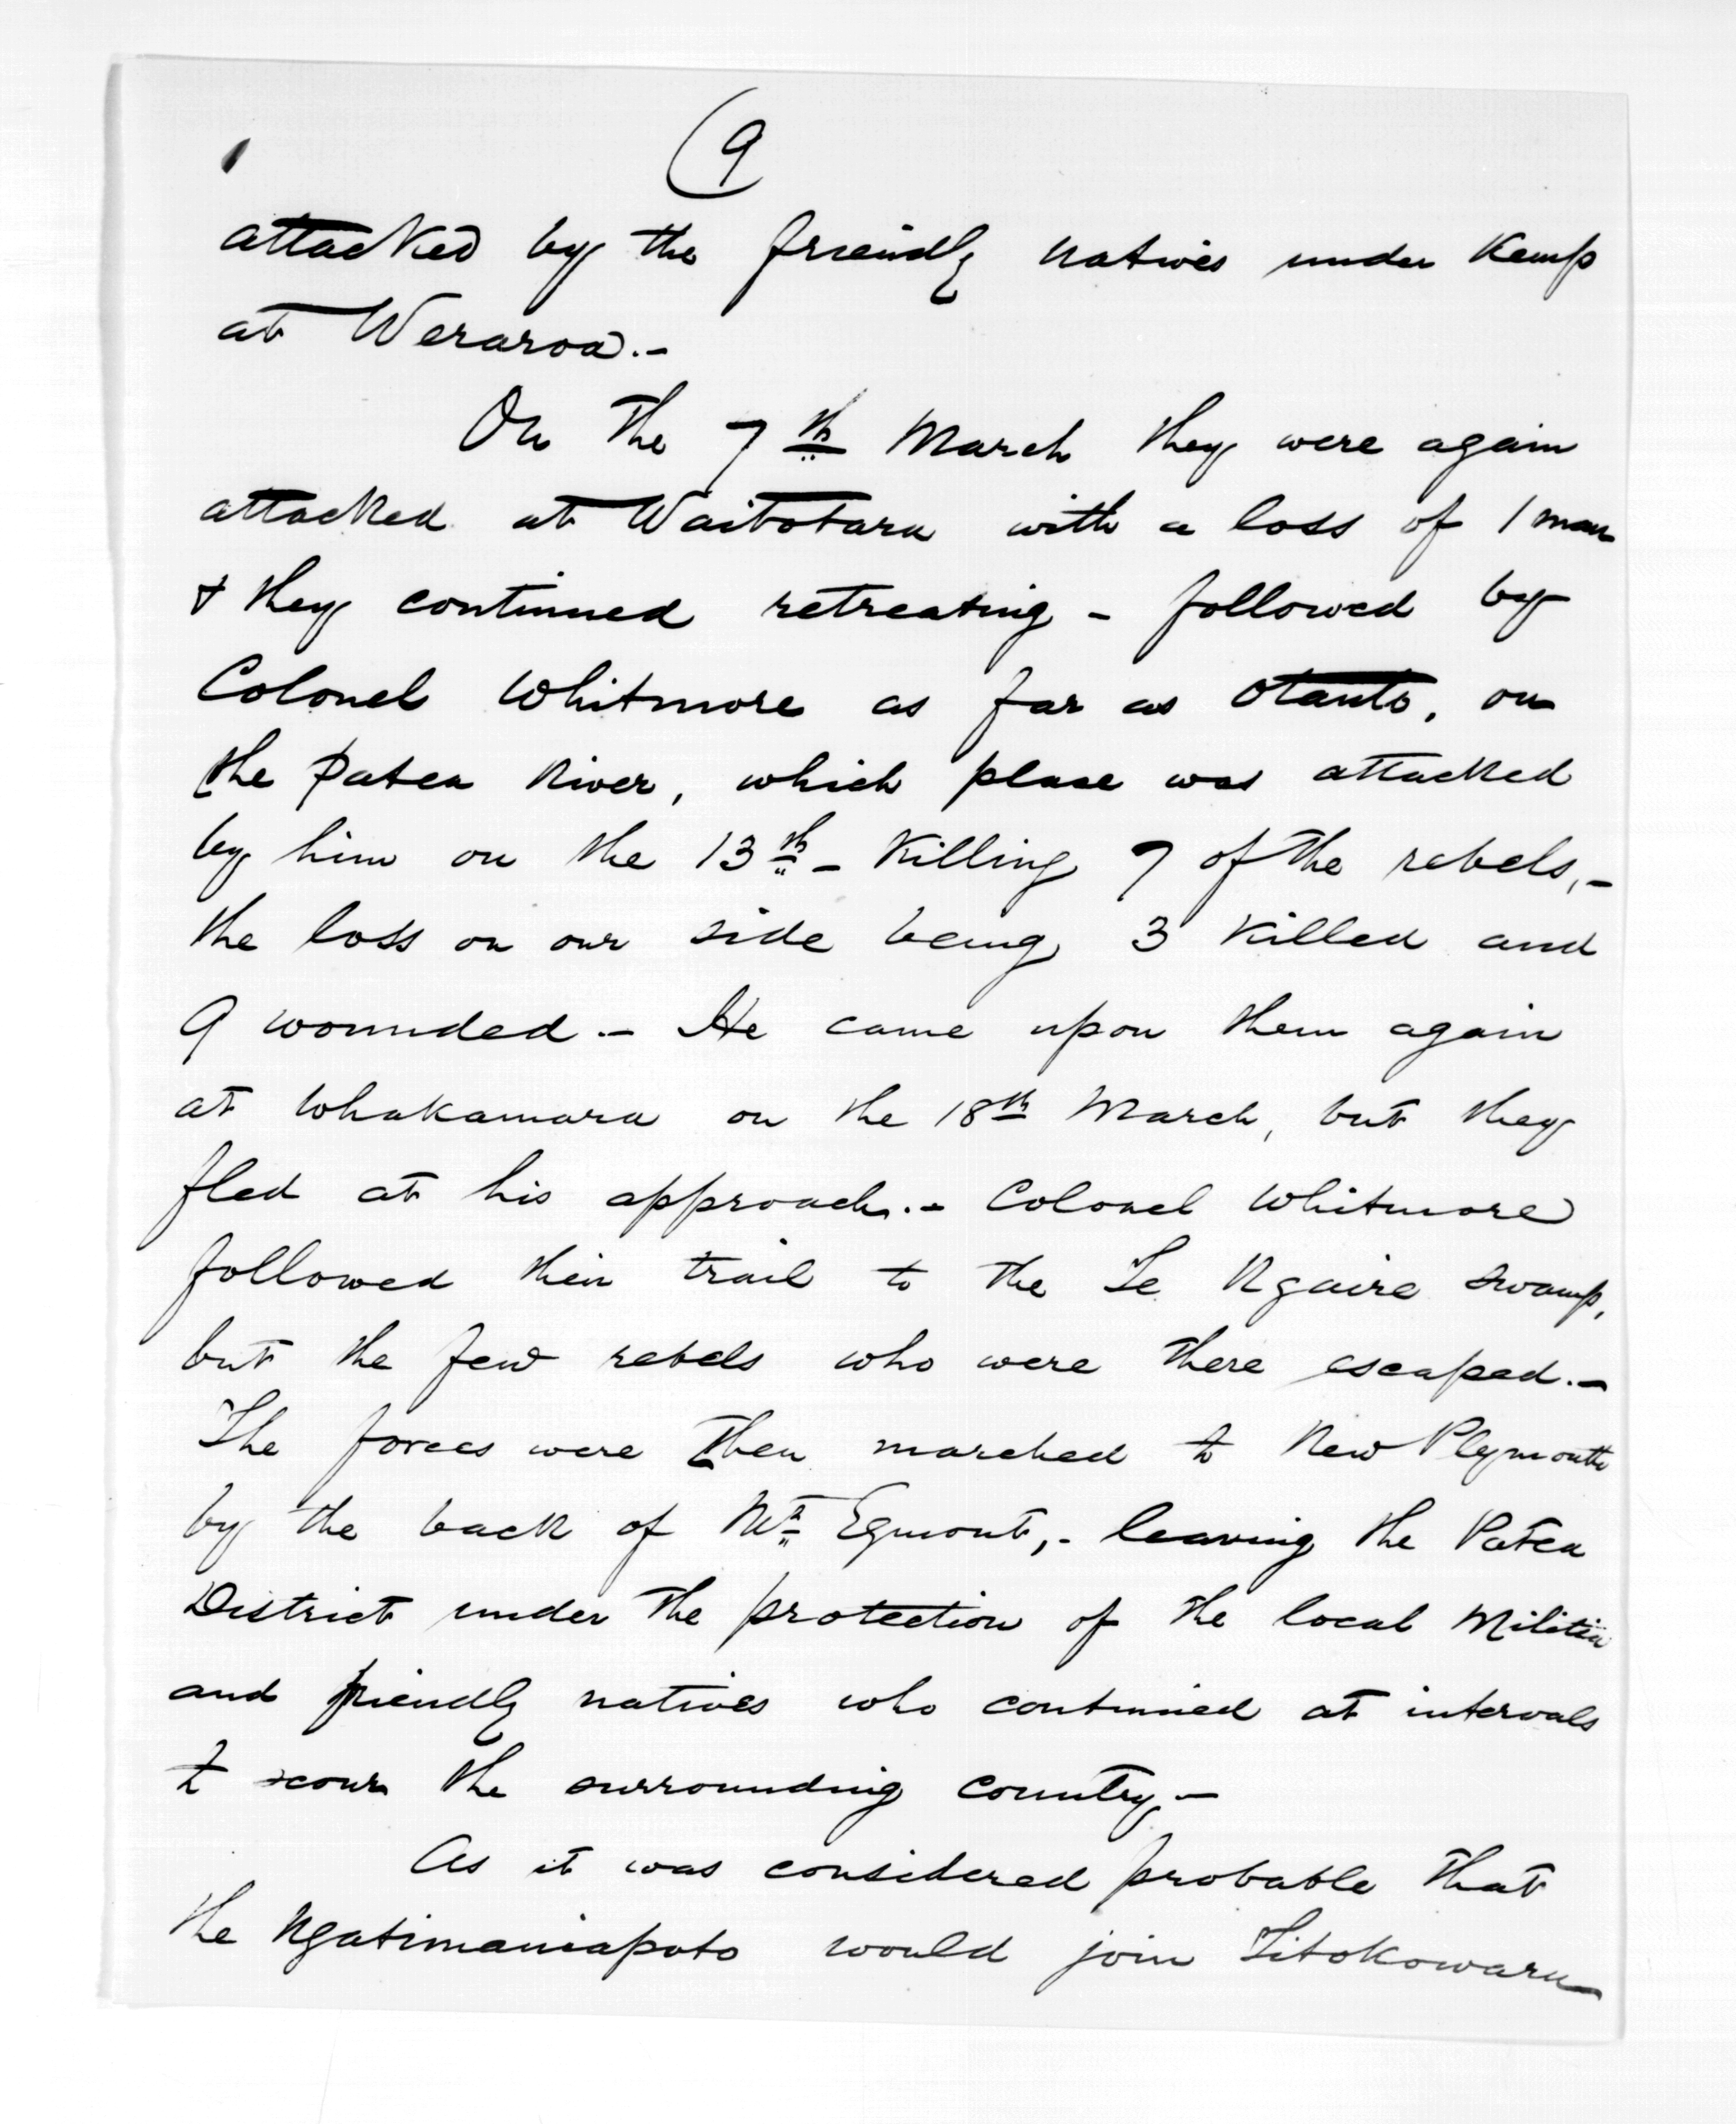 (9
attacked by the friendly natives under Kemp
at Weraroa.-
On the 7th March they were again
attacked at Waitotara with a loss of 1 man
& they continued retreating - followed by
Colonel Whitmore as far as Otauto, on
the Patea River, which place was attacked
by him on the 13th - Killing 7 of the rebels,-
the loss on our side being 3 killed and
9 wounded.- He came upon them again
at Whakamara on the 18th March, but they
fled at his approach.- Colonel Whitmore
followed their trail to the Te Ngaire swamp,
but the few rebels who were there escaped.-
The forces were then marched to New Plymouth
by the back of Mt Egmont,- leaving the Patea
District under the protection of the local Militia
and friendly natives who continued at intervals
to scour the surrounding country.-
As it was considered probable that
the Ngatimaniapoto would join Titokowaru